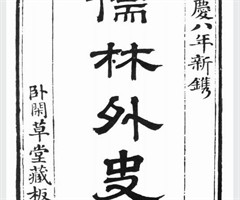 慶八年新鐫
儒林外史
卧閑草堂藏板